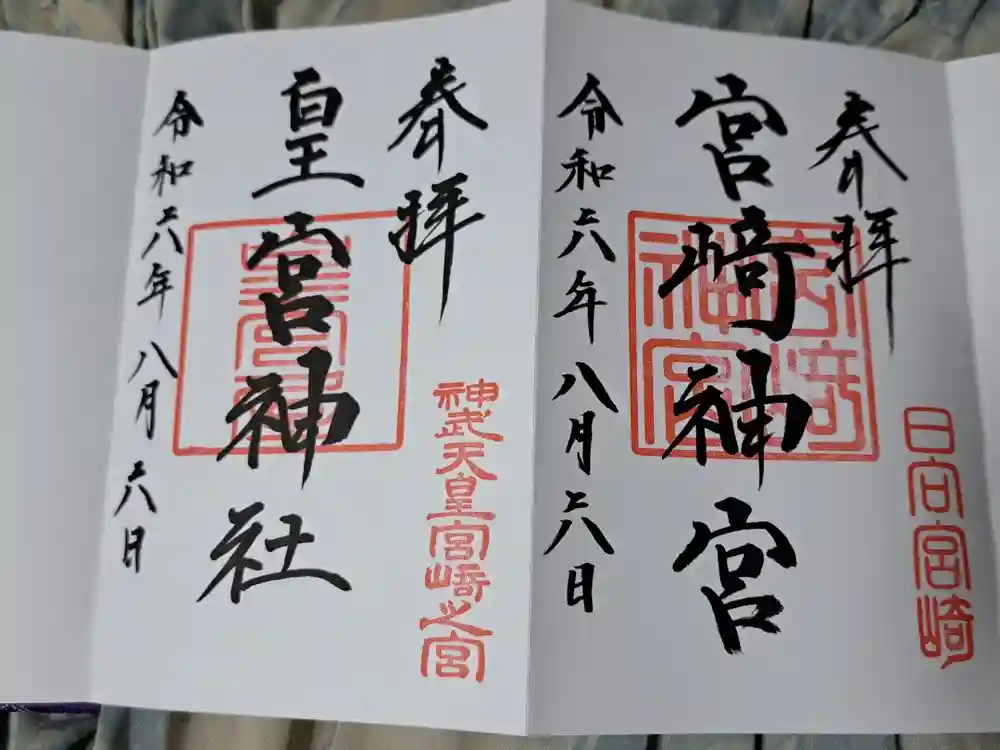 奉拝
日向宮崎
宮﨑神宮
宮﨑神宮
令和六年八月六日
奉拝
神武天皇宮﨑之宮
皇宮神社
令和六年八月六日